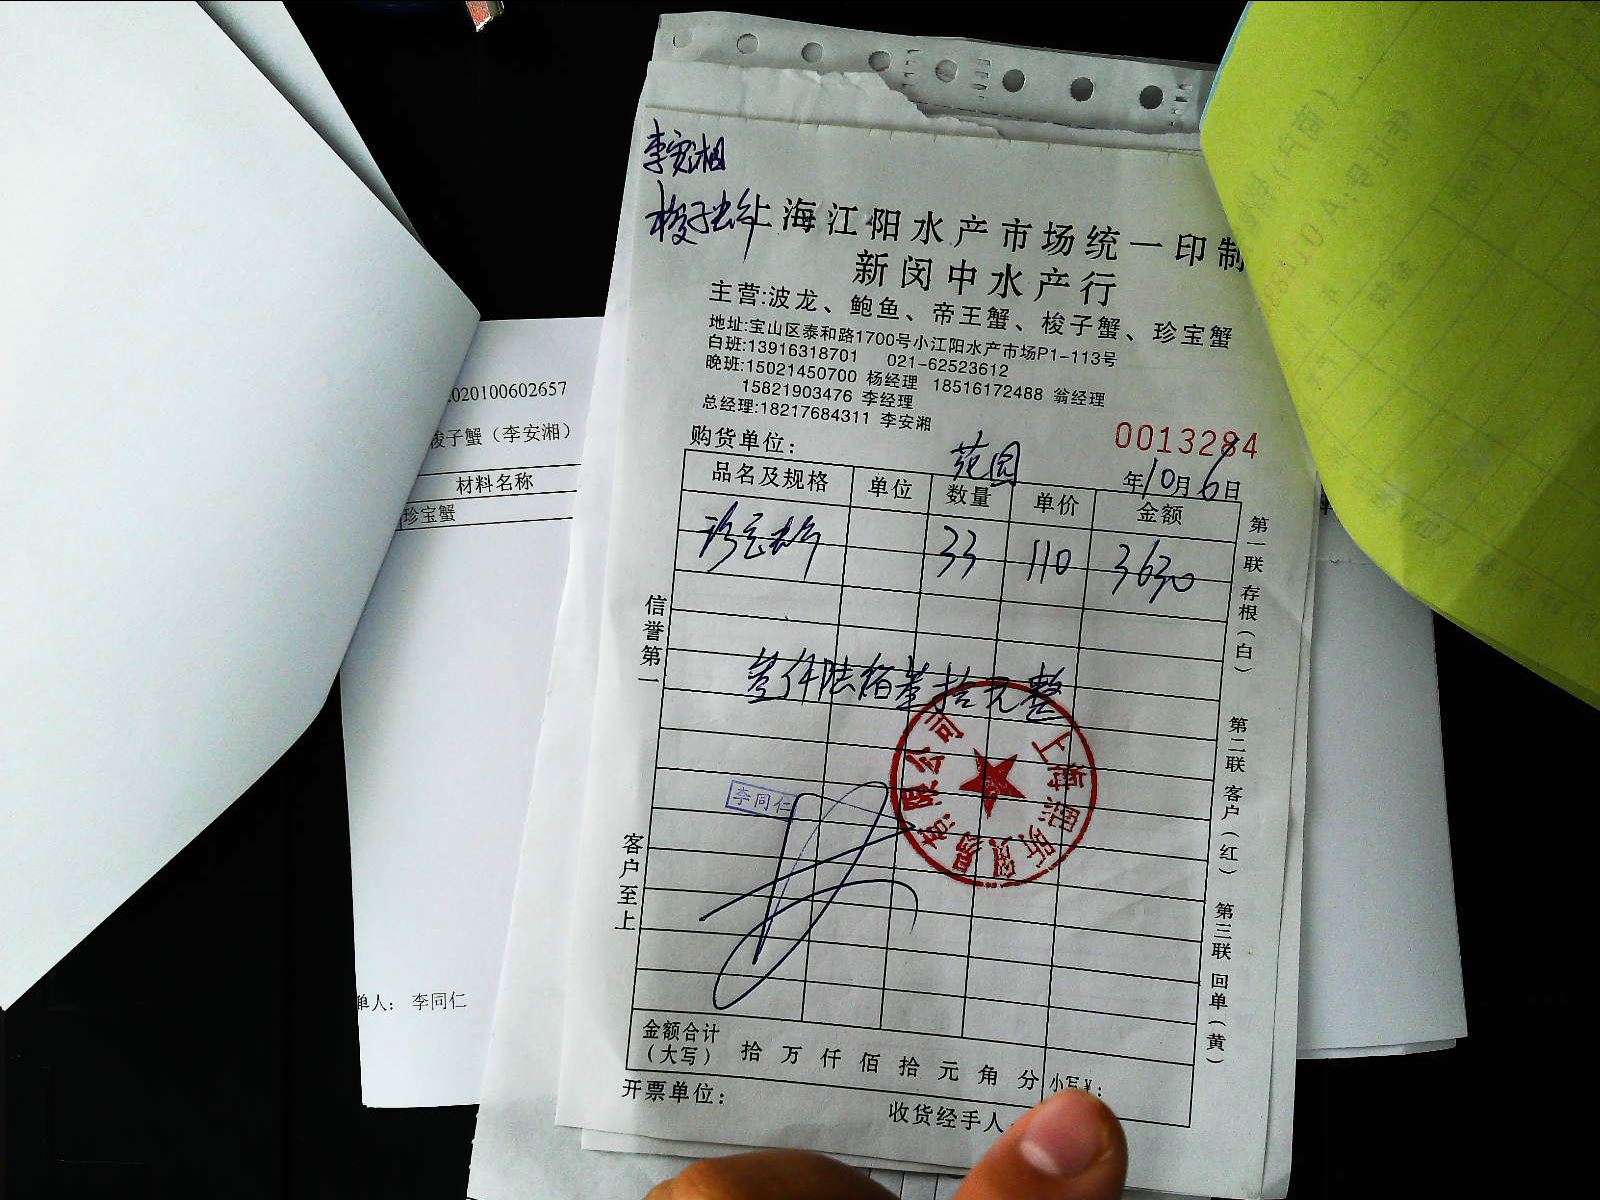 李安湘
梭子蟹
上海江阳水产市场统一印制
新闵中水产行
主营:波龙、鲍鱼、帝王蟹、梭子蟹、珍宝蟹
地址:宝山区泰和路1700号小江阳水产市场P1-113号
白班:13916318701 021-62523612
晚班:15021450700 杨经理 18516172488 翁经理
15821903476 李经理
总经理:18217684311 李安湘
0013284
购货单位: 范园
年10月6日
品名及规格 单位 数量 单价 金额
珍宝蟹 33 110 3630
叁仟陆佰叁拾元整
李同仁
信誉第一
客户至上
第一联 存根(白) 第二联 客户(红) 第三联 回单(黄)
金额合计
(大写) 拾 万 仟 佰 拾 元 角 分 小写¥:
开票单位:
收货经手人
020100602657
梭子蟹(李安湘)
材料名称
珍宝蟹
单人: 李同仁